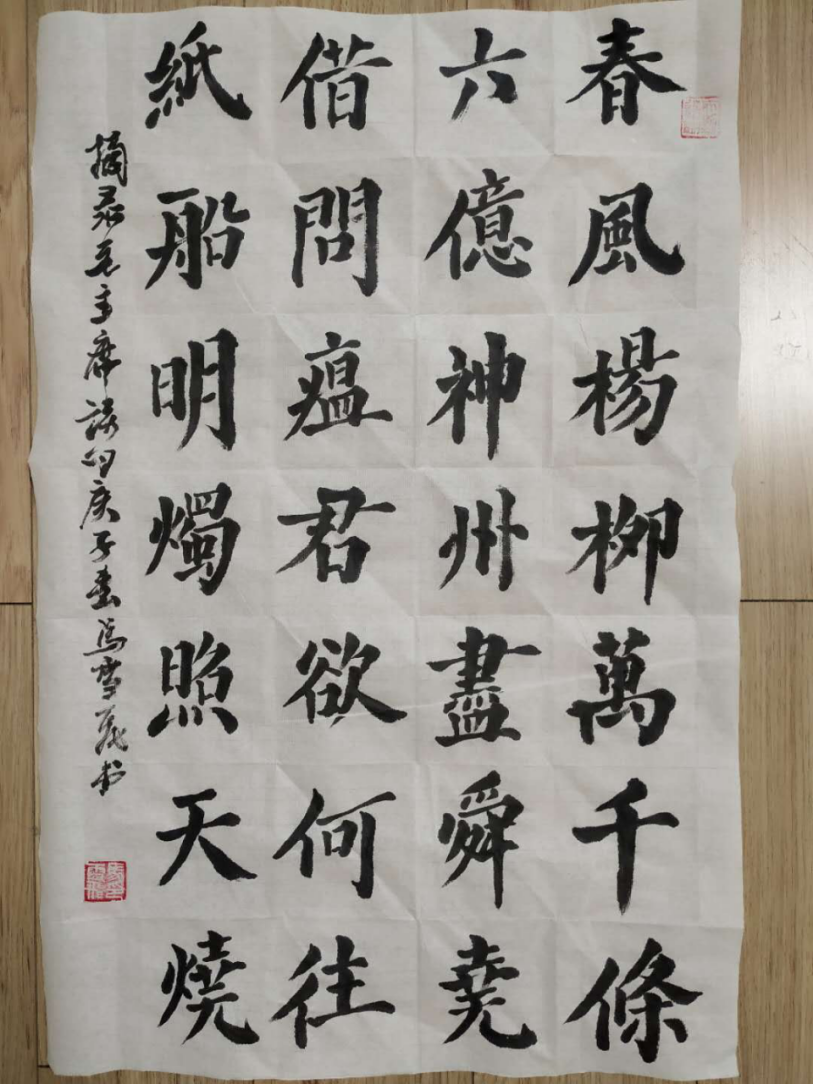 春風楊柳萬千條
六億神州盡舜堯
借問瘟君欲何往
紙船明燭照天燒
摘录毛主席詩句庚子春馮雪義书